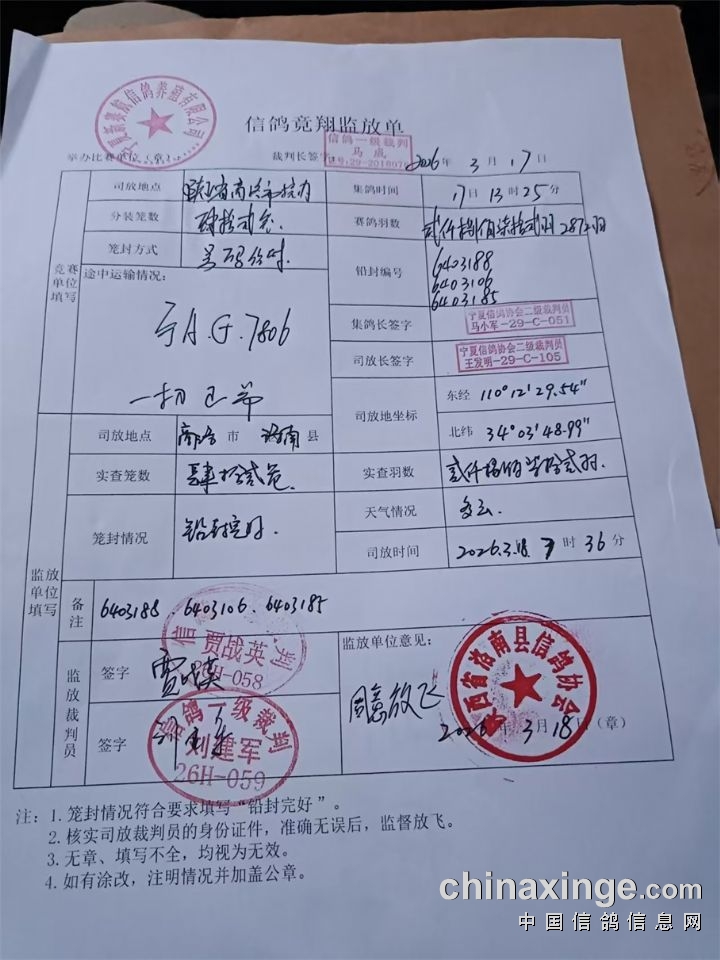 信鸽竞翔监放单
举办比赛单位(章)
裁判长签字
信鸽一级裁判
马成
2026年3月17日
竞赛单位填写
司放地点
集鸽时间 17日13时25分
分装笼数 肆拾贰笼
赛鸽羽数 贰仟捌佰柒拾贰羽 2872羽
笼封方式
铅封编号
6403188
6403106
6403185
途中运输情况:
宁A.G.7806
集鸽长签字
宁夏信鸽协会二级裁判员
马小军-29-C-051
司放长签字
宁夏信鸽协会二级裁判员
王发明-29-C-105
司放地坐标
东经 110°12'29.54"
北纬 34°03'48.99"
监放单位填写
司放地点 商洛市 洛南县
实查笼数 肆拾贰笼
实查羽数 贰仟捌佰柒拾贰羽.
笼封情况 铅封完好.
天气情况 多云.
司放时间 2026.3.18. 7时36分
备注 6403188.6403106.6403185
监放裁判员
签字 贾战英
贾战英
26H-058
签字
信鸽一级裁判
刘建军
26H-059
监放单位意见:
同意放飞
陕西省洛南县信鸽协会
2026年3月18日(章)
注:1.笼封情况符合要求填写“铅封完好”。
2.核实司放裁判员的身份证件,准确无误后,监督放飞。
3.无章、填写不全,均视为无效。
4.如有涂改,注明情况并加盖公章。
chinaxinge.com
中国信鸽信息网